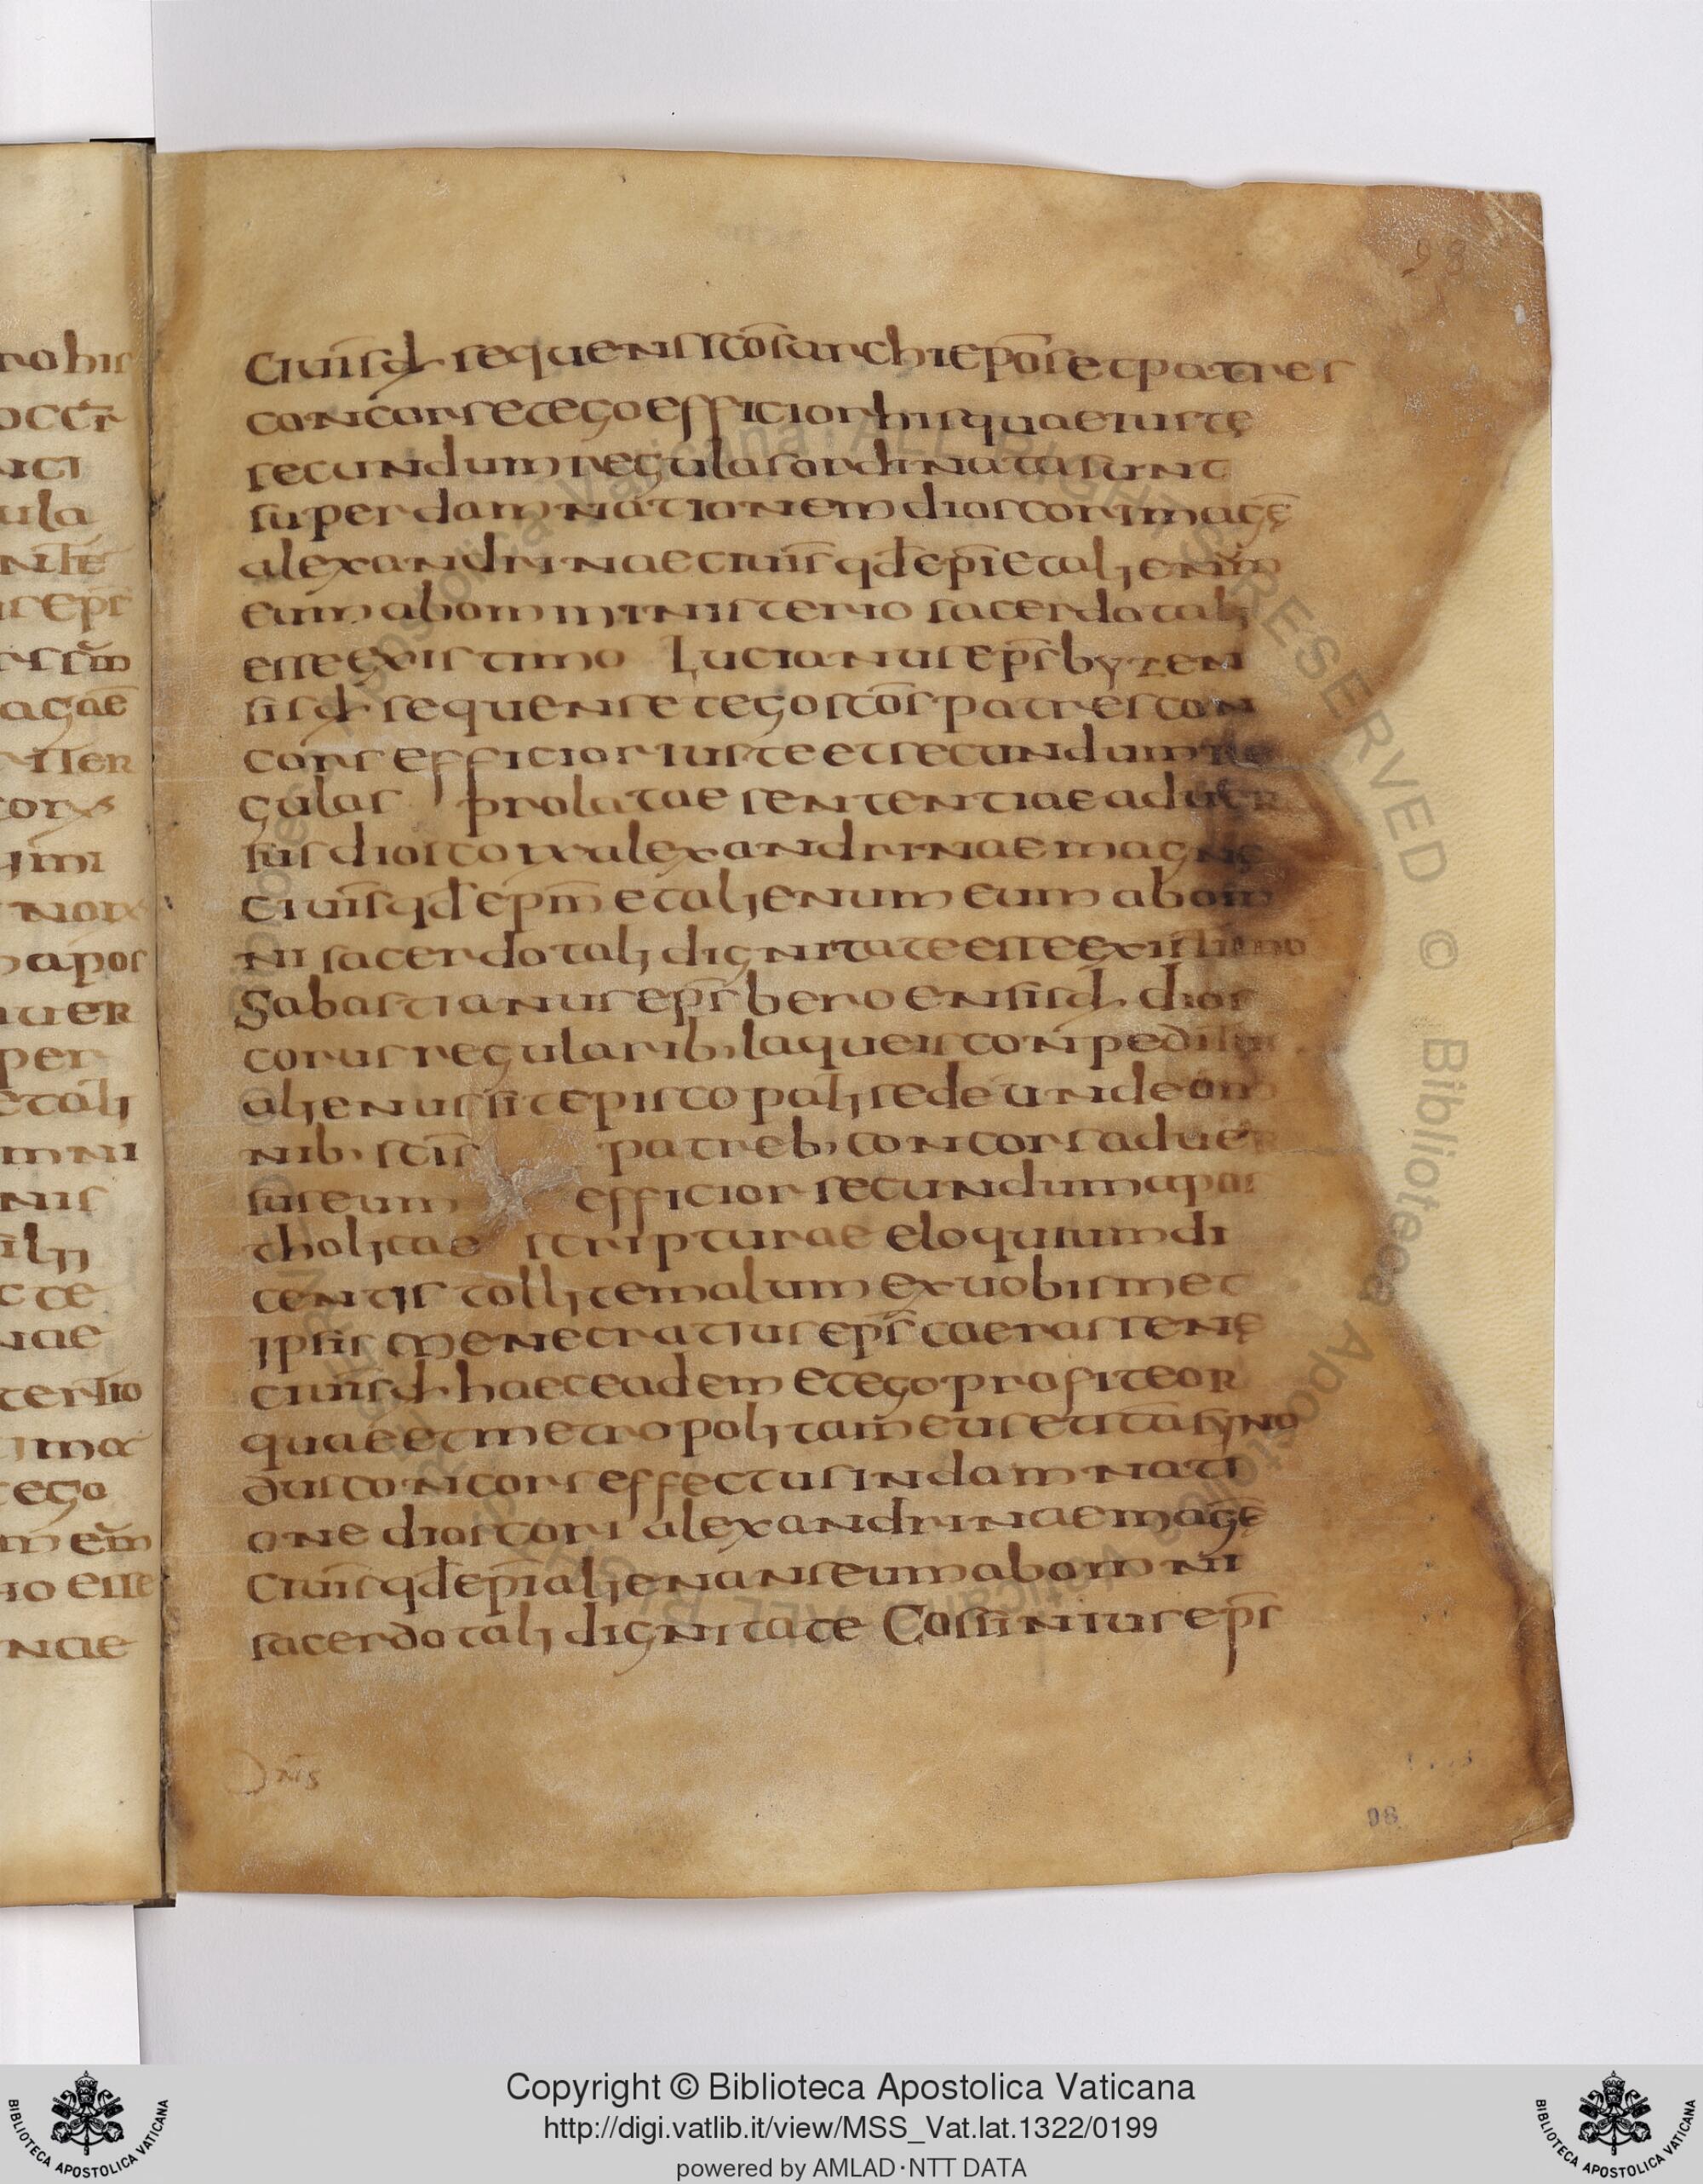 98
ciuis̄ d sequens sc̄os archiep̄os et patres
concors et ego efficior his quae iuste
secundum regulas ordinata sunt
super damnationem dioscori magē
alexandrinae ciuis̄ qd ep̄i et alienum
eum ab omni ministerio sacerdotali
esse existimo Lucianus ep̄s byzen
sis d sequens et ego sc̄os patres con
cors efficior iuste et secundum re
gulas prolatae sententiae aduer
sus dioscorx alexandrinae magnę
ciuis̄ qd ep̄m et alienum eum ab om
ni sacerdotali dignitate esse existimo
Sabastianus ep̄s beroensis d dios
corus regularib, laqueis conpeditus
alienus sit episcopali sede unde om
nib, sc̄is patreb, concors aduer
sus eum efficior secundum apos
tholicae scripturae eloquium di
centis tollite malum ex uobis met
ipsis Menecratius ep̄s caerastenę
ciuis d haec eadem et ego profiteor
quae et metropolitam̄ eus et ita syno
dus concors effectus in damnati
one dioscori alexandrinae magē
ciuis̄ qd ep̄i alienans eum ab omni
sacerdotali dignitate Cossinius ep̄s
98
Copyright © Biblioteca Apostolica Vaticana
http://digi.vatlib.it/view/MSS_Vat.lat.1322/0199
powered by AMLAD·NTT DATA
BIBLIOTECA APOSTOLICA VATICANA
BIBLIOTECA APOSTOLICA VATICANA